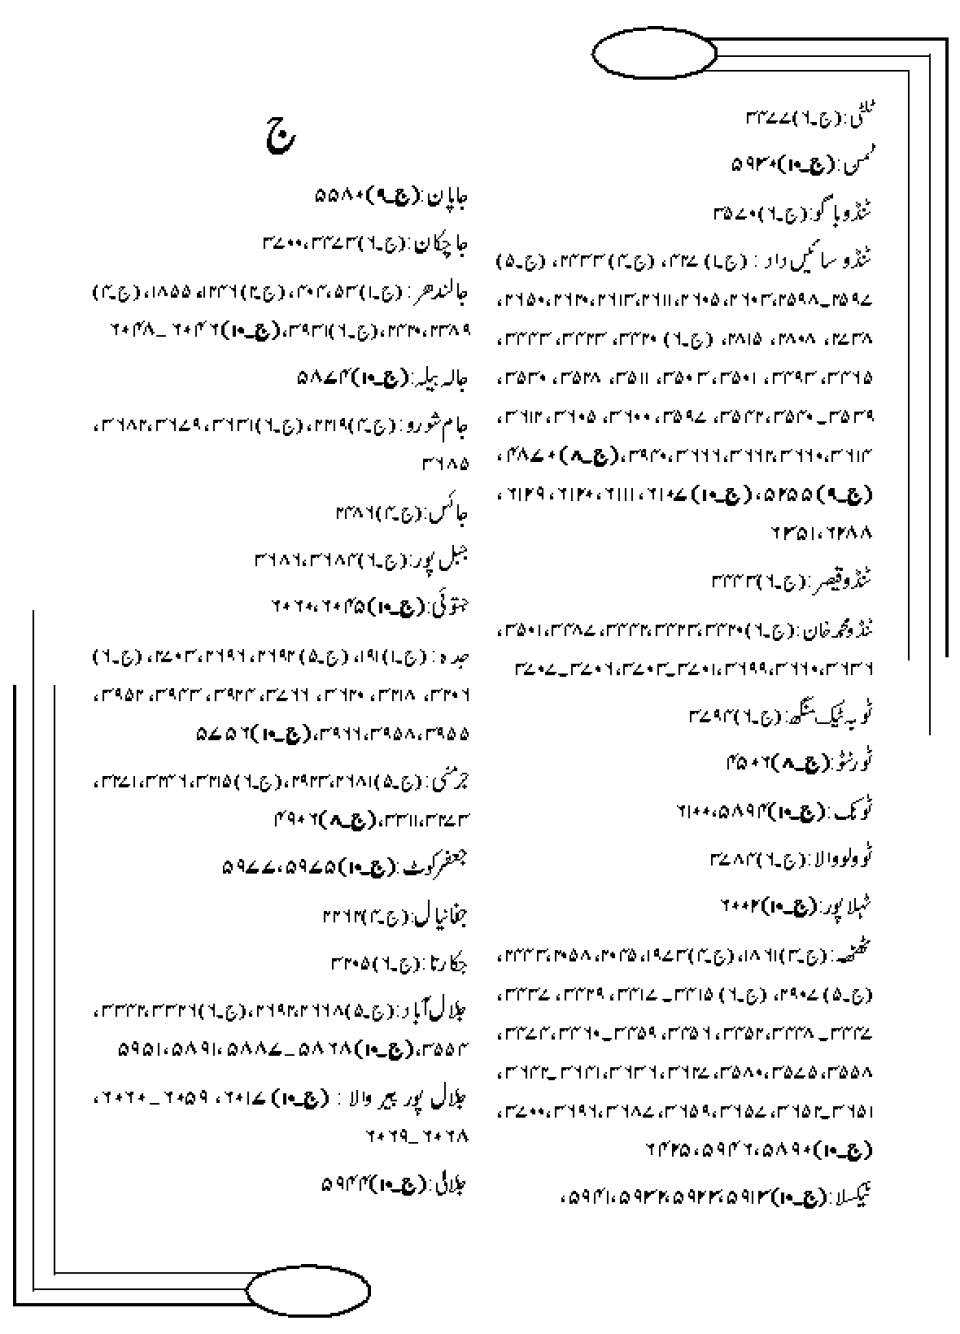 ٹلٹی:(ج۔۶)۳۳۷۷
ٹمسن:(ج۔۱۰)۵۹۳۰
ٹنڈو باگو:(ج۔۶)۳۵۷۰
ٹنڈو سائیں داد: (ج۔۱)۴۲۷، (ج۔۴)۲۴۳۳، (ج۔۵)
۲۵۹۷_۲۵۹۸،۲۶۰۳،۲۶۰۵،۲۶۱۱،۲۶۱۳،۲۶۲۰،۲۶۵۰،
۲۷۳۸، ۲۸۰۸، ۲۸۱۵، (ج۔۶) ۳۳۲۰، ۳۴۲۳، ۳۴۴۳،
۳۴۶۵، ۳۴۹۳، ۳۵۰۱، ۳۵۰۳، ۳۵۱۱، ۳۵۲۸، ۳۵۳۰،
۳۵۳۹_۳۵۴۰، ۳۵۴۲، ۳۵۹۷، ۳۶۰۰، ۳۶۰۵، ۳۶۱۲،
۳۶۱۴،۳۶۶۰،۳۶۶۲،۳۶۶۶،۳۹۴۰،(ج۔۸)۴۸۷۰،
(ج۔۹)۵۲۵۵،(ج۔۱۰)۶۱۰۷،۶۱۱۱،۶۱۲۰،۶۱۲۹،
۶۲۸۸،۶۳۵۱
ٹنڈو قیصر:(ج۔۶)۳۴۴۳
ٹنڈو محمد خان:(ج۔۶)۳۴۲۰،۳۴۲۳،۳۴۴۲،۳۴۸۷،۳۵۰۱،
۳۶۳۶،۳۶۶۰،۳۶۹۹،۳۷۰۱_۳۷۰۳،۳۷۰۶_۳۷۰۷
ٹوبہ ٹیک سنگھ:(ج۔۶)۳۷۹۴
ٹورنٹو:(ج۔۸)۴۵۰۶
ٹونک:(ج۔۱۰)۵۸۹۴،۶۱۰۰
ٹوولووالا:(ج۔۶)۳۷۸۴
ٹہلا پور:(ج۔۱۰)۶۰۰۲
ٹھٹھہ:(ج۔۳)۱۸۶۱،(ج۔۴)۱۹۷۳،۲۰۴۵،۲۰۵۸،۲۴۳۳،
(ج۔۵)۲۹۰۷، (ج۔۶)۳۳۱۵_۳۳۱۷، ۳۳۲۹، ۳۳۳۷،
۳۳۴۷_۳۳۴۸، ۳۳۵۲، ۳۳۵۶، ۳۳۵۹_۳۳۶۰، ۳۴۷۴،
۳۵۵۸،۳۵۷۵،۳۵۸۰،۳۶۲۷،۳۶۳۶،۳۶۴۱_۳۶۴۲،
۳۶۵۱_۳۶۵۲،۳۶۵۷،۳۶۵۹،۳۶۸۷،۳۶۹۶،۳۷۰۰،
(ج۔۱۰)۵۸۹۰،۵۹۴۶،۶۴۲۵
ٹیکسلا:(ج۔۱۰)۵۹۱۳،۵۹۲۳،۵۹۳۲،۵۹۴۱،
ج
جاپان:(ج۔۹)۵۵۸۰
جاچکان:(ج۔۶)۳۴۷۳،۳۷۰۰
جالندھر:(ج۔۱)۵۳،۴۰۴،(ج۔۲)۱۲۴۶،۱۸۵۵،(ج۔۴)
۲۳۸۹،۲۴۲۰،(ج۔۶)۳۹۳۱،(ج۔۱۰)۶۰۴۶_۶۰۴۸
جالہ بیلہ:(ج۔۱۰)۵۸۷۴
جام شورو:(ج۔۴)۲۲۱۹،(ج۔۶)۳۶۳۱،۳۶۷۹،۳۶۸۲،
۳۶۸۵
جائس:(ج۔۴)۲۴۸۶
جبل پور:(ج۔۶)۳۶۸۴،۳۶۸۶
جتوئی:(ج۔۱۰)۶۰۴۵،۶۰۶۰
جدہ:(ج۔۱)۱۹۱، (ج۔۵)۲۶۹۲،۲۶۹۶،۲۷۰۳، (ج۔۶)
۳۲۰۶، ۳۲۱۸، ۳۶۲۰، ۳۷۶۶، ۳۹۲۴، ۳۹۴۳، ۳۹۵۲،
۳۹۵۵،۳۹۵۸،۳۹۶۶،(ج۔۱۰)۵۷۵۶
جرمنی:(ج۔۵)۲۶۸۱،۲۹۲۳،(ج۔۶)۳۲۱۵،۳۲۴۶،۳۲۷۱،
۳۲۷۳،۳۳۱۱،(ج۔۸)۴۹۰۶
جعفر کوٹ:(ج۔۱۰)۵۹۷۵،۵۹۷۷
جغانیاں:(ج۔۴)۲۲۶۲
جکارتا:(ج۔۶)۳۲۰۵
جلال آباد:(ج۔۵)۲۶۶۸،۲۶۹۲،(ج۔۶)۳۳۲۶،۳۳۴۲،
۳۵۵۴،(ج۔۱۰)۵۸۶۸_۵۸۸۷،۵۸۹۱،۵۹۵۱
جلال پور پیر والا: (ج۔۱۰)۶۰۱۷، ۶۰۵۹_۶۰۶۰،
۶۰۶۸_۶۰۶۹
جلالی:(ج۔۱۰)۵۹۴۴